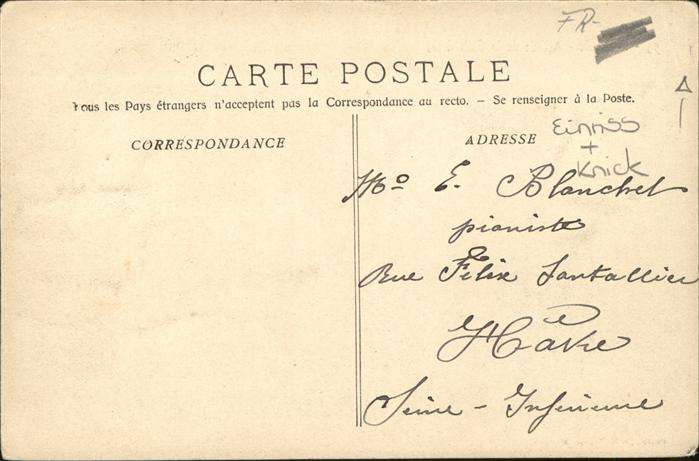 FR-
CARTE POSTALE
Tous les Pays étrangers n'acceptent pas la Correspondance au recto. - Se renseigner à la Poste.
CORRESPONDANCE
ADRESSE
Einriss
+
Knick
Mo E. Blanchet
pianiste
Rue Félix Santallier
Hâvre
Seine - Inférieure